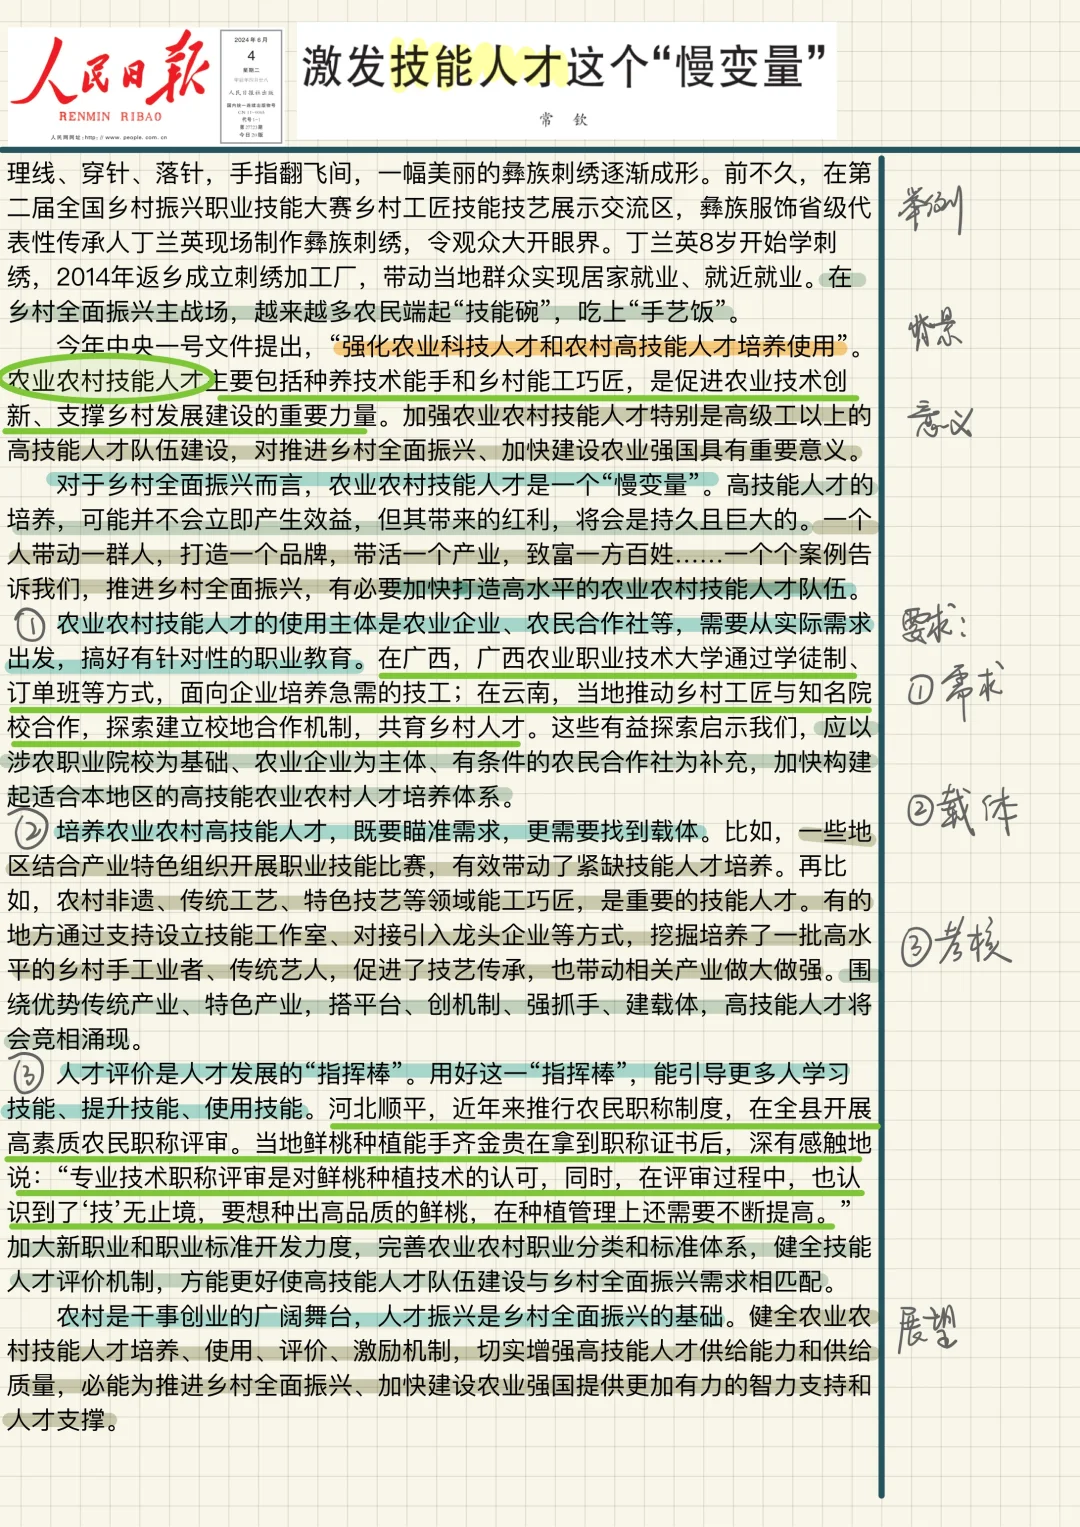 人民日报
RENMIN RIBAO
人民网网址:http://www.people.com.cn
2024年6月
4
星期二
人民日报社出版
国内统一连续出版物号
代号1-1
今日20版
激发技能人才这个“慢变量”
常 钦
理线、穿针、落针，手指翻飞间，一幅美丽的彝族刺绣逐渐成形。前不久，在第
二届全国乡村振兴职业技能大赛乡村工匠技能技艺展示交流区，彝族服饰省级代
表性传承人丁兰英现场制作彝族刺绣，令观众大开眼界。丁兰英8岁开始学刺
绣，2014年返乡成立刺绣加工厂，带动当地群众实现居家就业、就近就业。在
乡村全面振兴主战场，越来越多农民端起“技能碗”，吃上“手艺饭”。
今年中央一号文件提出，“强化农业科技人才和农村高技能人才培养使用”。
农业农村技能人才主要包括种养技术能手和乡村能工巧匠，是促进农业技术创
新、支撑乡村发展建设的重要力量。加强农业农村技能人才特别是高级工以上的
高技能人才队伍建设，对推进乡村全面振兴、加快建设农业强国具有重要意义。
对于乡村全面振兴而言，农业农村技能人才是一个“慢变量”。高技能人才的
培养，可能并不会立即产生效益，但其带来的红利，将会是持久且巨大的。一个
人带动一群人，打造一个品牌，带活一个产业，致富一方百姓……一个个案例告
诉我们，推进乡村全面振兴，有必要加快打造高水平的农业农村技能人才队伍。
① 农业农村技能人才的使用主体是农业企业、农民合作社等，需要从实际需求
出发，搞好有针对性的职业教育。在广西，广西农业职业技术大学通过学徒制、
订单班等方式，面向企业培养急需的技工；在云南，当地推动乡村工匠与知名院
校合作，探索建立校地合作机制，共育乡村人才。这些有益探索启示我们，应以
涉农职业院校为基础、农业企业为主体、有条件的农民合作社为补充，加快构建
起适合本地区的高技能农业农村人才培养体系。
② 培养农业农村高技能人才，既要瞄准需求，更需要找到载体。比如，一些地
区结合产业特色组织开展职业技能比赛，有效带动了紧缺技能人才培养。再比
如，农村非遗、传统工艺、特色技艺等领域能工巧匠，是重要的技能人才。有的
地方通过支持设立技能工作室、对接引入龙头企业等方式，挖掘培养了一批高水
平的乡村手工业者、传统艺人，促进了技艺传承，也带动相关产业做大做强。围
绕优势传统产业、特色产业，搭平台、创机制、强抓手、建载体，高技能人才将
会竞相涌现。
③ 人才评价是人才发展的“指挥棒”。用好这一“指挥棒”，能引导更多人学习
技能、提升技能、使用技能。河北顺平，近年来推行农民职称制度，在全县开展
高素质农民职称评审。当地鲜桃种植能手齐金贵在拿到职称证书后，深有感触地
说：“专业技术职称评审是对鲜桃种植技术的认可，同时，在评审过程中，也认
识到了‘技’无止境，要想种出高品质的鲜桃，在种植管理上还需要不断提高。”
加大新职业和职业标准开发力度，完善农业农村职业分类和标准体系，健全技能
人才评价机制，方能更好使高技能人才队伍建设与乡村全面振兴需求相匹配。
农村是干事创业的广阔舞台，人才振兴是乡村全面振兴的基础。健全农业农
村技能人才培养、使用、评价、激励机制，切实增强高技能人才供给能力和供给
质量，必能为推进乡村全面振兴、加快建设农业强国提供更加有力的智力支持和
人才支撑。
举例
背景
意义
要求：
①需求
②载体
③考核
展望